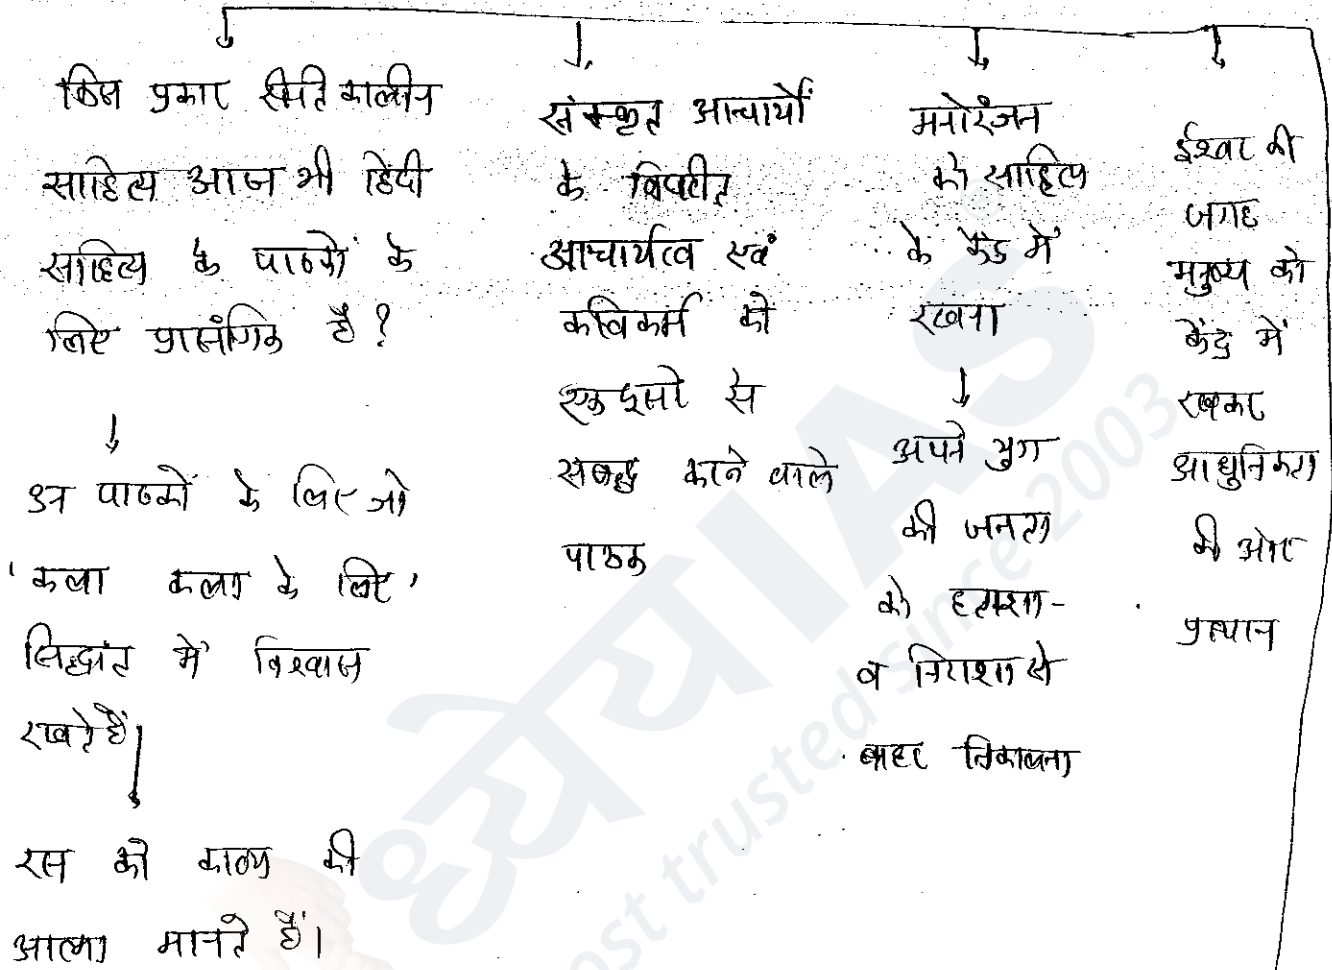 किस प्रकार रीतिकालीन
साहित्य आज भी हिंदी
साहित्य के पाठकों के
लिए प्रासंगिक है?
↓
उन पाठकों के लिए जो
'कला कला के लिए'
सिद्धांत में विश्वास
रखते हैं।
↓
रस को काव्य की
आत्मा मानते हैं।
संस्कृत आचार्यों
के विपरीत
आचार्यत्व एवं
कविकर्म को
एक दूसरे से
सम्बद्ध करने वाले
पाठक
मनोरंजन
को साहित्य
के केंद्र में
रखना
↓
अपने युग
की जनता
को हताशा-
व निराशा से
बाहर निकालना
ईश्वर की
जगह
मनुष्य को
केंद्र में
रखकर
आधुनिकता
की ओर
प्रस्थान
ध्येय IAS
ost trusted since 2003